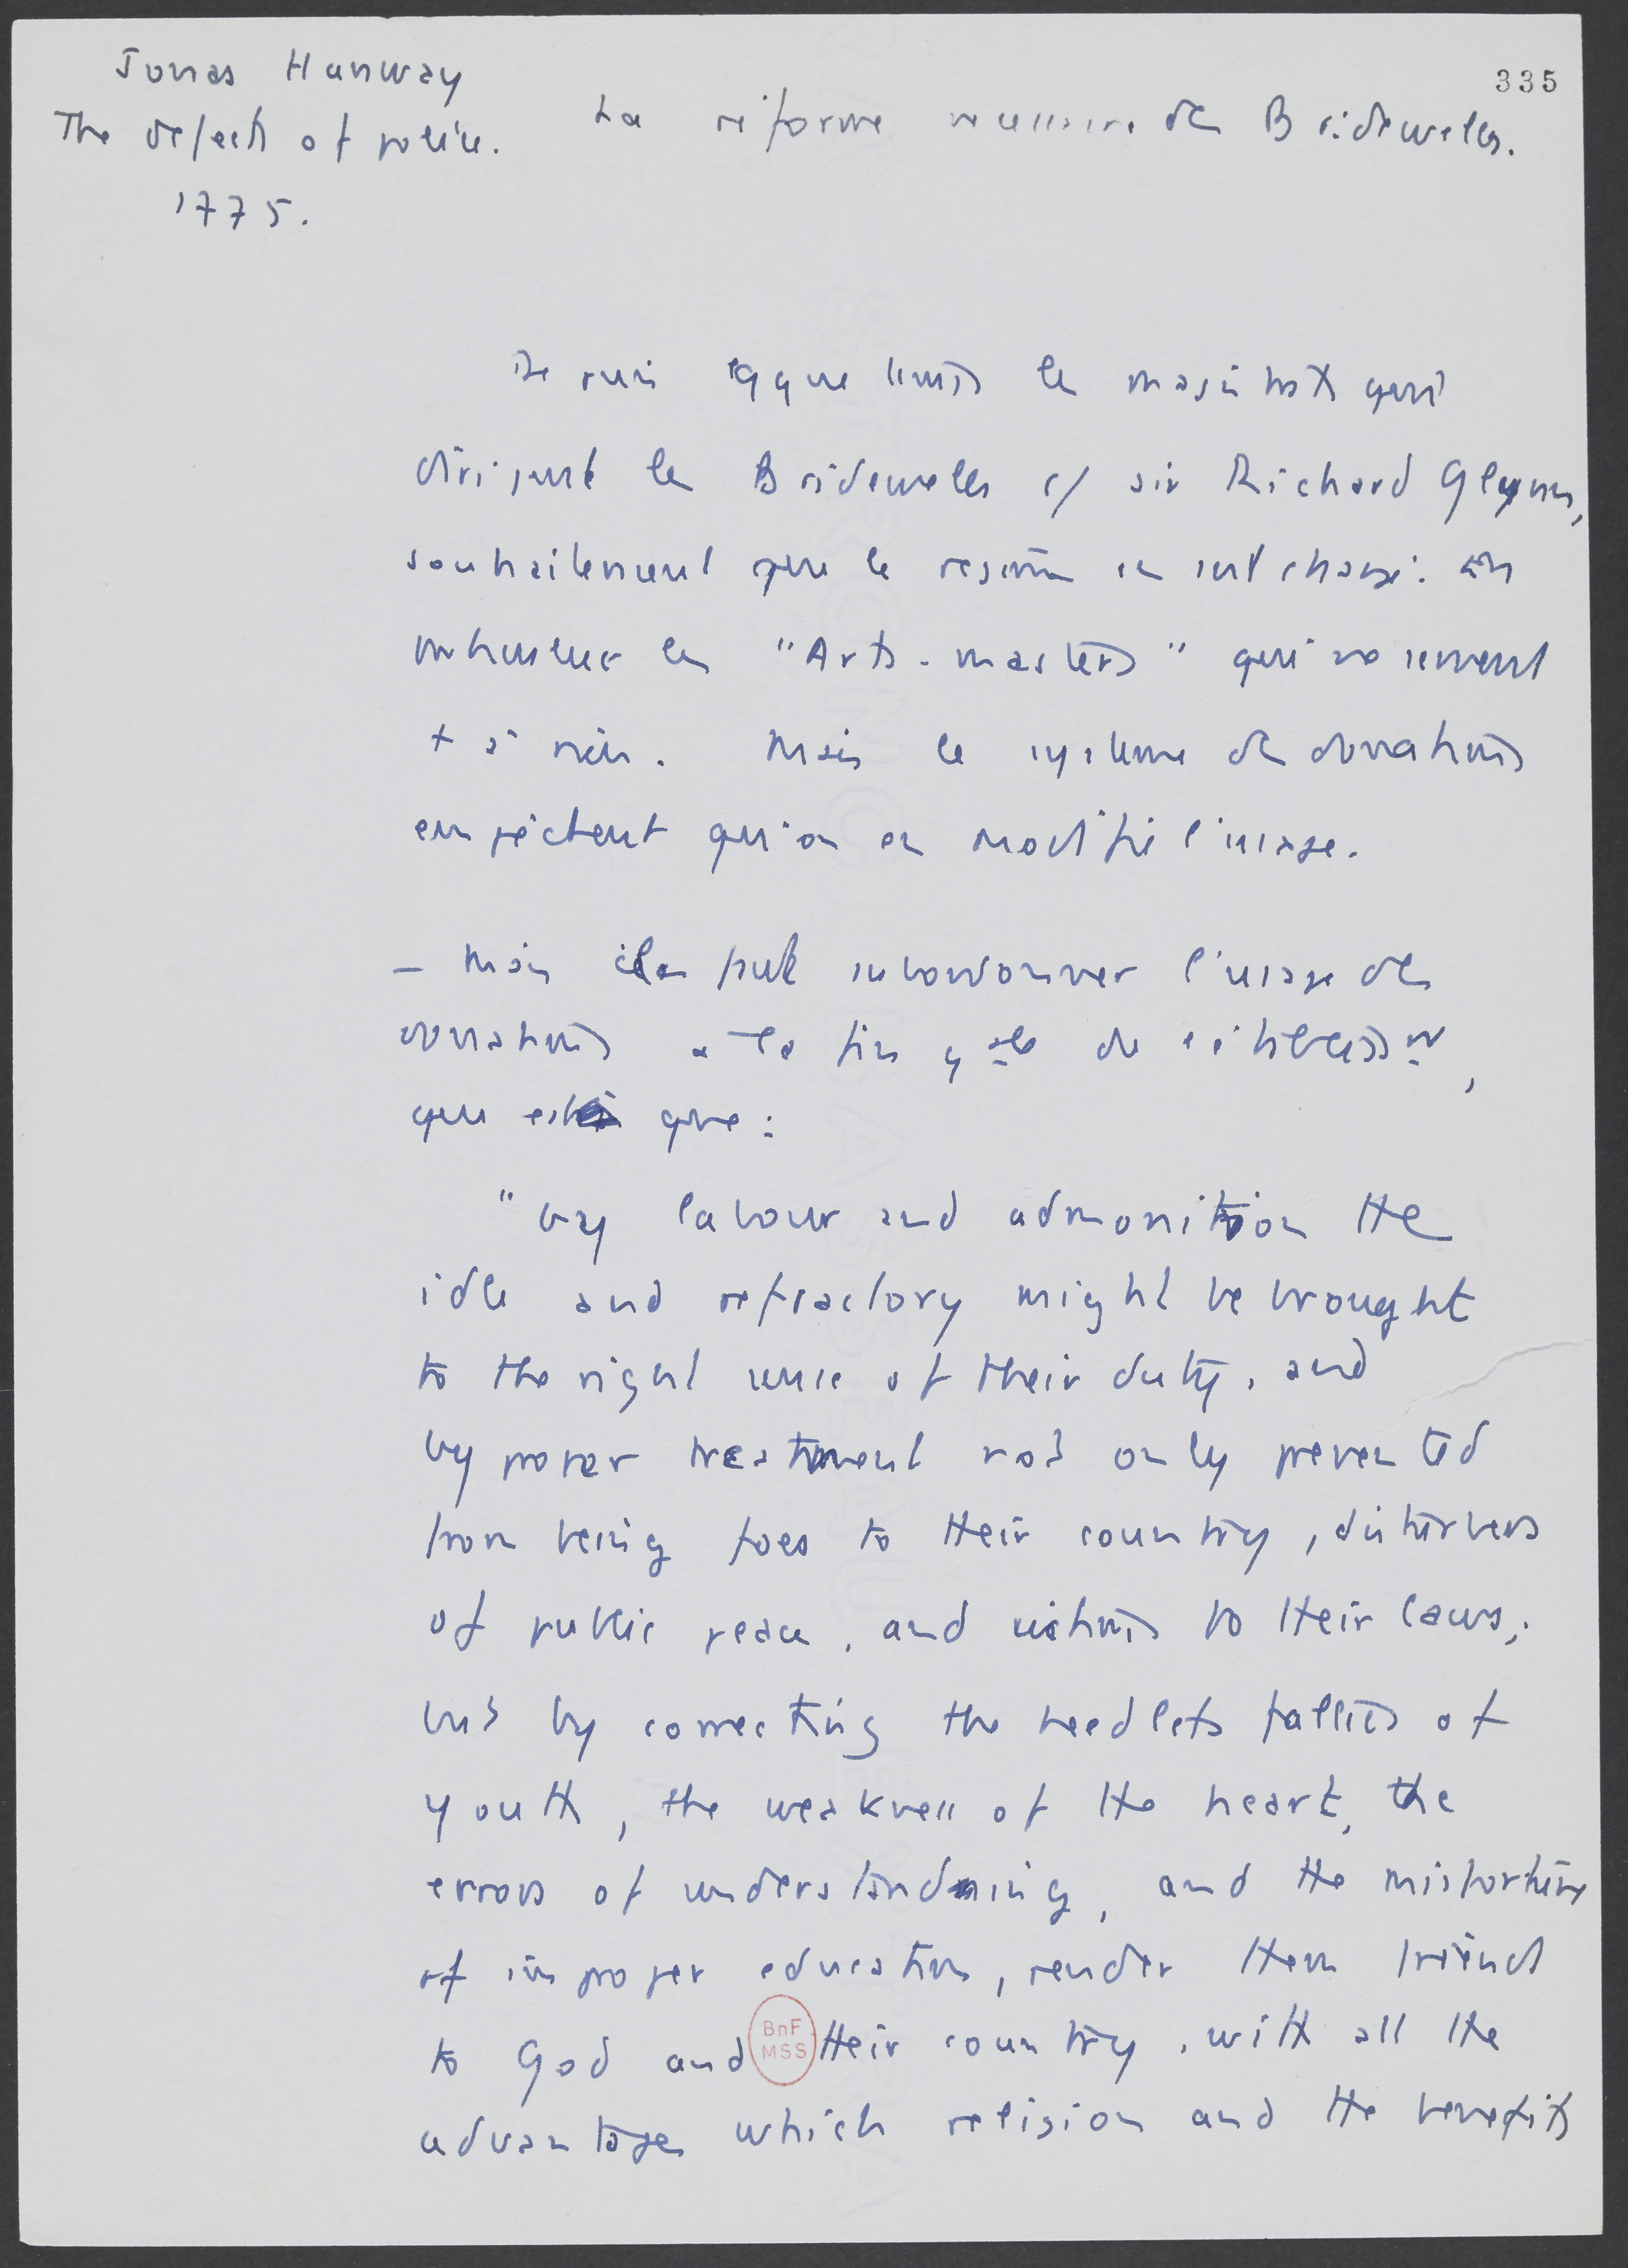 335
Jonas Hanway
The defects of police.
1775.
La réforme nécessaire des Bridewells.
Depuis qque temps les magistrats qui
dirigent les Bridewells c/ sir Richard Glynn,
souhaiteraient que le régime en soit changé. On
les "Arts-masters" qui ne servent
+ à rien. Mais le système des donations
empêchent qu'on en modifie l'usage.
– Mais ils peut subordonner l'usage des
donations à la fin gale de l'établissmt,
qui est que :
"by labour and admonition the
idle and refractory might be brought
to the right sense of their duty, and
by proper treatment not only prevented
from being foes to their country, disturbers
of public peace, and victims to their laws,
but by correcting the heedless follies of
youth, the weakness of the heart, the
errors of understanding, and the misfortune
of improper education, render them friend
to God and their country, with all the
advantages which religion and the benefits
BnF
MSS